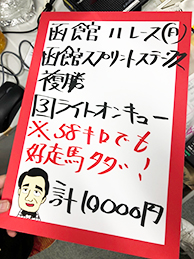 函館11レース(日)
函館スプリントステークス
複勝
3ライトオンキュー
※58キロでも
好走馬タダ!
計10000円